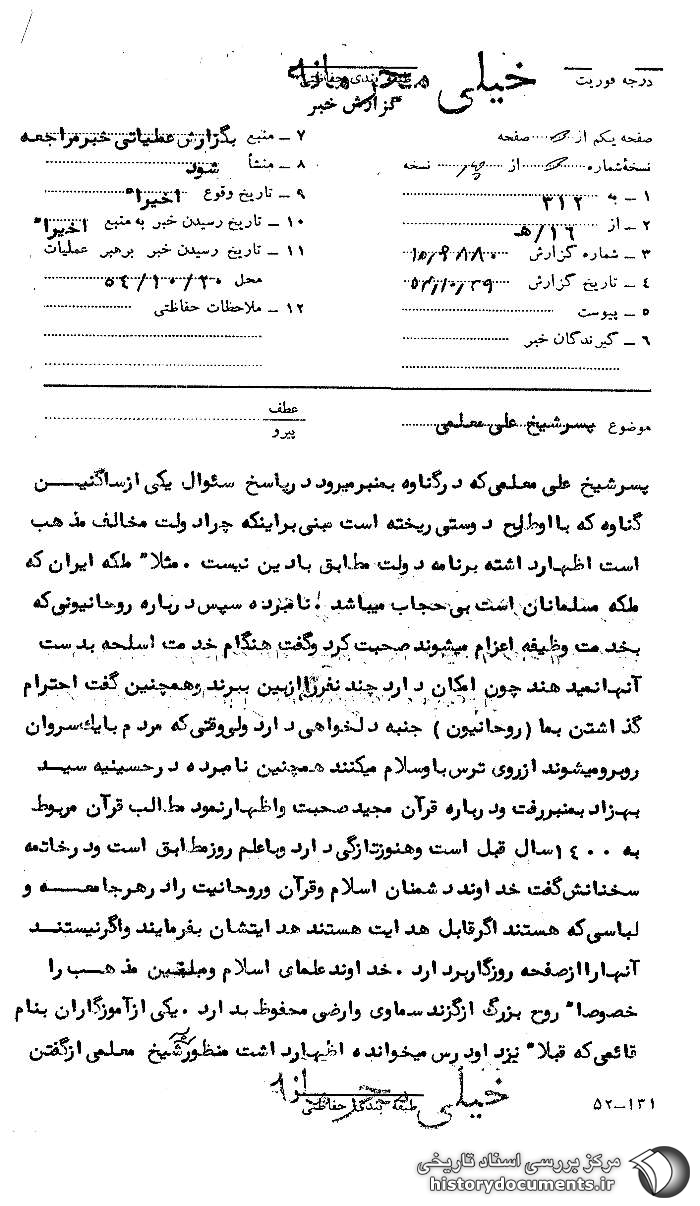 خیلی محرمانه
درجه فوریت
طبقه بندی حفاظتی
گزارش خبر
صفحه یکم از صفحه
نسخهٔ شماره از نسخه
۱ ــ به ۳۱۲
۲ ــ از ۱۶/ه
۳ ــ شماره گزارش ۱۵/۹۸۸۰
۴ ــ تاریخ گزارش ۵۴/۱۰/۲۹
۵ ــ پیوست
۶ ــ گیرندگان خبر
۷ ــ منبع بگزارش عملیاتی خبر مراجعه
۸ ــ منشأ شود
۹ ــ تاریخ وقوع اخیرا"
۱۰ ــ تاریخ رسیدن خبر به منبع اخیرا"
۱۱ ــ تاریخ رسیدن خبر برهبر عملیات
محل ۵۴/۱۰/۲۰
۱۲ ــ ملاحظات حفاظتی
موضوع پسر شیخ علی معلمی
عطف
پیرو
پسر شیخ علی معلمی که در گناوه بمنبر میرود در پاسخ سئوال یکی از ساکنین
گناوه که با او طرح دوستی ریخته است مبنی بر اینکه چرا دولت مخالف مذهب
است اظهار داشته برنامه دولت مطابق با دین نیست . مثلا" ملکه ایران که
ملکه مسلمانان است بی حجاب میباشد . نامبرده سپس درباره روحانیونی که
بخدمت وظیفه اعزام میشوند صحبت کرد و گفت هنگام خدمت اسلحه بدست
آنها نمیدهند چون امکان دارد چند نفر را از بین ببرند و همچنین گفت احترام
گذاشتن بما ( روحانیون ) جنبه دلخواهی دارد ولی وقتی که مردم با یک سروان
روبرو میشوند از روی ترس باو سلام میکنند همچنین نامبرده در حسینیه سید
بهزاد بمنبر رفت و درباره قرآن مجید صحبت و اظهار نمود مطالب قرآن مربوط
به ۱۴۰۰ سال قبل است و هنوز تازگی دارد و با علم روز مطابق است و در خاتمه
سخنانش گفت خداوند دشمنان اسلام و قرآن و روحانیت را در هر جامعه و
لباسی که هستند اگر قابل هدایت هستند هدایتشان بفرمایند و اگر نیستند
آنها را از صفحه روزگار بردارد . خداوند علمای اسلام و مبلغین مذهب را
خصوصا" روح بزرگ از گزند سماوی و ارضی محفوظ بدارد . یکی از آموزگاران بنام
قائمی که قبلا" نیز نزد او درس میخوانده اظهار داشت منظور شیخ معلمی از گفتن
خیلی محرمانه
طبقه بندی حفاظتی
۱۳۱ــ۵۲
مرکز بررسی اسناد تاریخی
historydocuments.ir